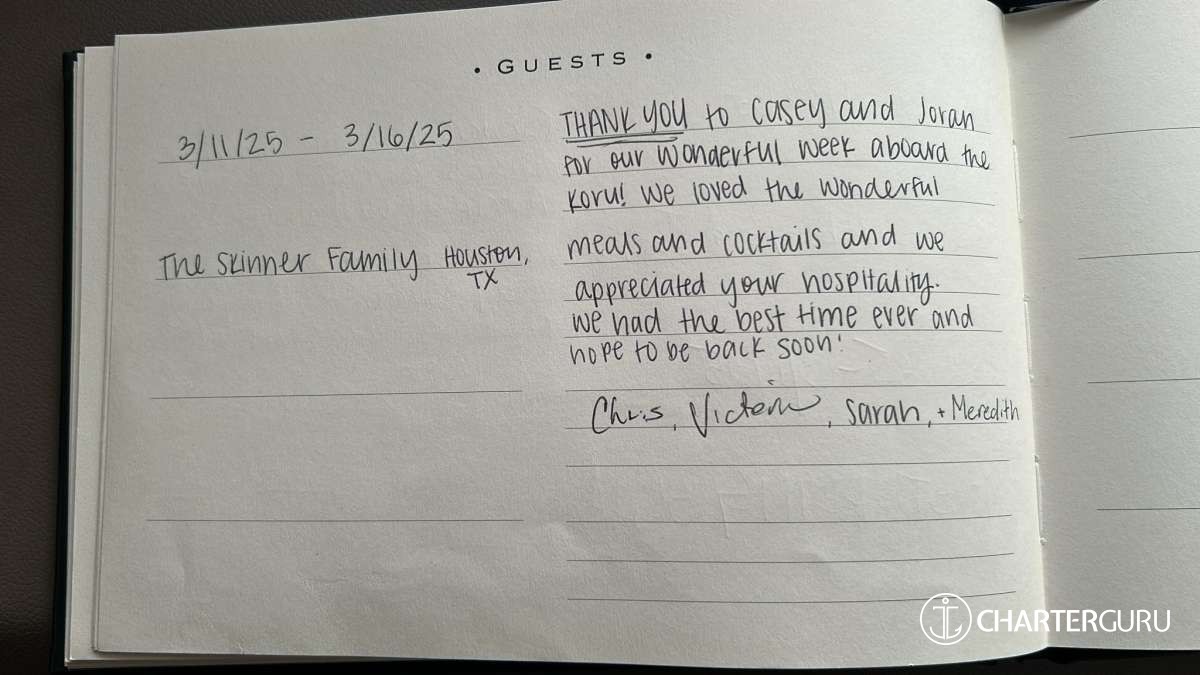 • GUESTS •
3/11/25 - 3/16/25
The Skinner Family Houston,
TX
THANK YOU to Casey and Joran
for our wonderful week aboard the
Koru! We loved the wonderful
meals and cocktails and we
appreciated your hospitality.
We had the best time ever and
hope to be back soon!
Chris, Victoria, Sarah, + Meredith
CHARTERGURU